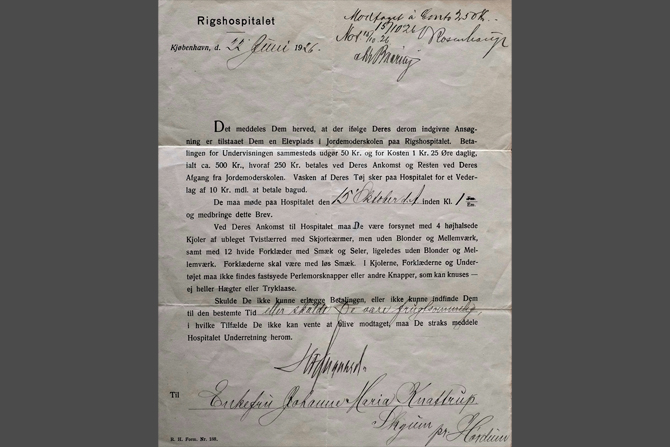 Rigshospitalet
Modtaget à Conto 250 Kr.
15/10 26 Rosenhauge
Kjøbenhavn, d. 22 Juni 1926.
Det meddeles Dem herved, at der ifølge Deres derom indgivne Ansøg-
ning er tilstaaet Dem en Elevplads i Jordemoderskolen paa Rigshospitalet. Beta-
lingen for Undervisningen sammesteds udgør 50 Kr. og for Kosten 1 Kr. 25 Øre daglig,
ialt ca. 500 Kr., hvoraf 250 Kr. betales ved Deres Ankomst og Resten ved Deres
Afgang fra Jordemoderskolen. Vasken af Deres Tøj sker paa Hospitalet for et Veder-
lag af 10 Kr. mdl. at betale bagud.
De maa møde paa Hospitalet den 15' Oktober d. A. inden Kl. 1
og medbringe dette Brev.
Ved Deres Ankomst til Hospitalet maa De være forsynet med 4 højhalsede
Kjoler af ubleget Tvistlærred med Skjorteærmer, men uden Blonder og Mellemværk,
samt med 12 hvide Forklæder med Smæk og Seler, ligeledes uden Blonder og Mel-
lemværk. Forklæderne skal være med løs Smæk. I Kjolerne, Forklæderne og Under-
tøjet maa ikke findes fastsyede Perlemorsknapper eller andre Knapper, som kan knuses —
ej heller Hægter eller Tryklaase.
Skulde De ikke kunne erlægge Betalingen, eller ikke kunne indfinde Dem
til den bestemte Tid eller skulde De være frugtsommelig,
i hvilke Tilfælde De ikke kan vente at blive modtaget, maa De straks meddele
Hospitalet Underretning herom.
Til
Enkefru Johanne Maria Knattrup
Skyum pr. Hørdum
R. H. Form. Nr. 198.